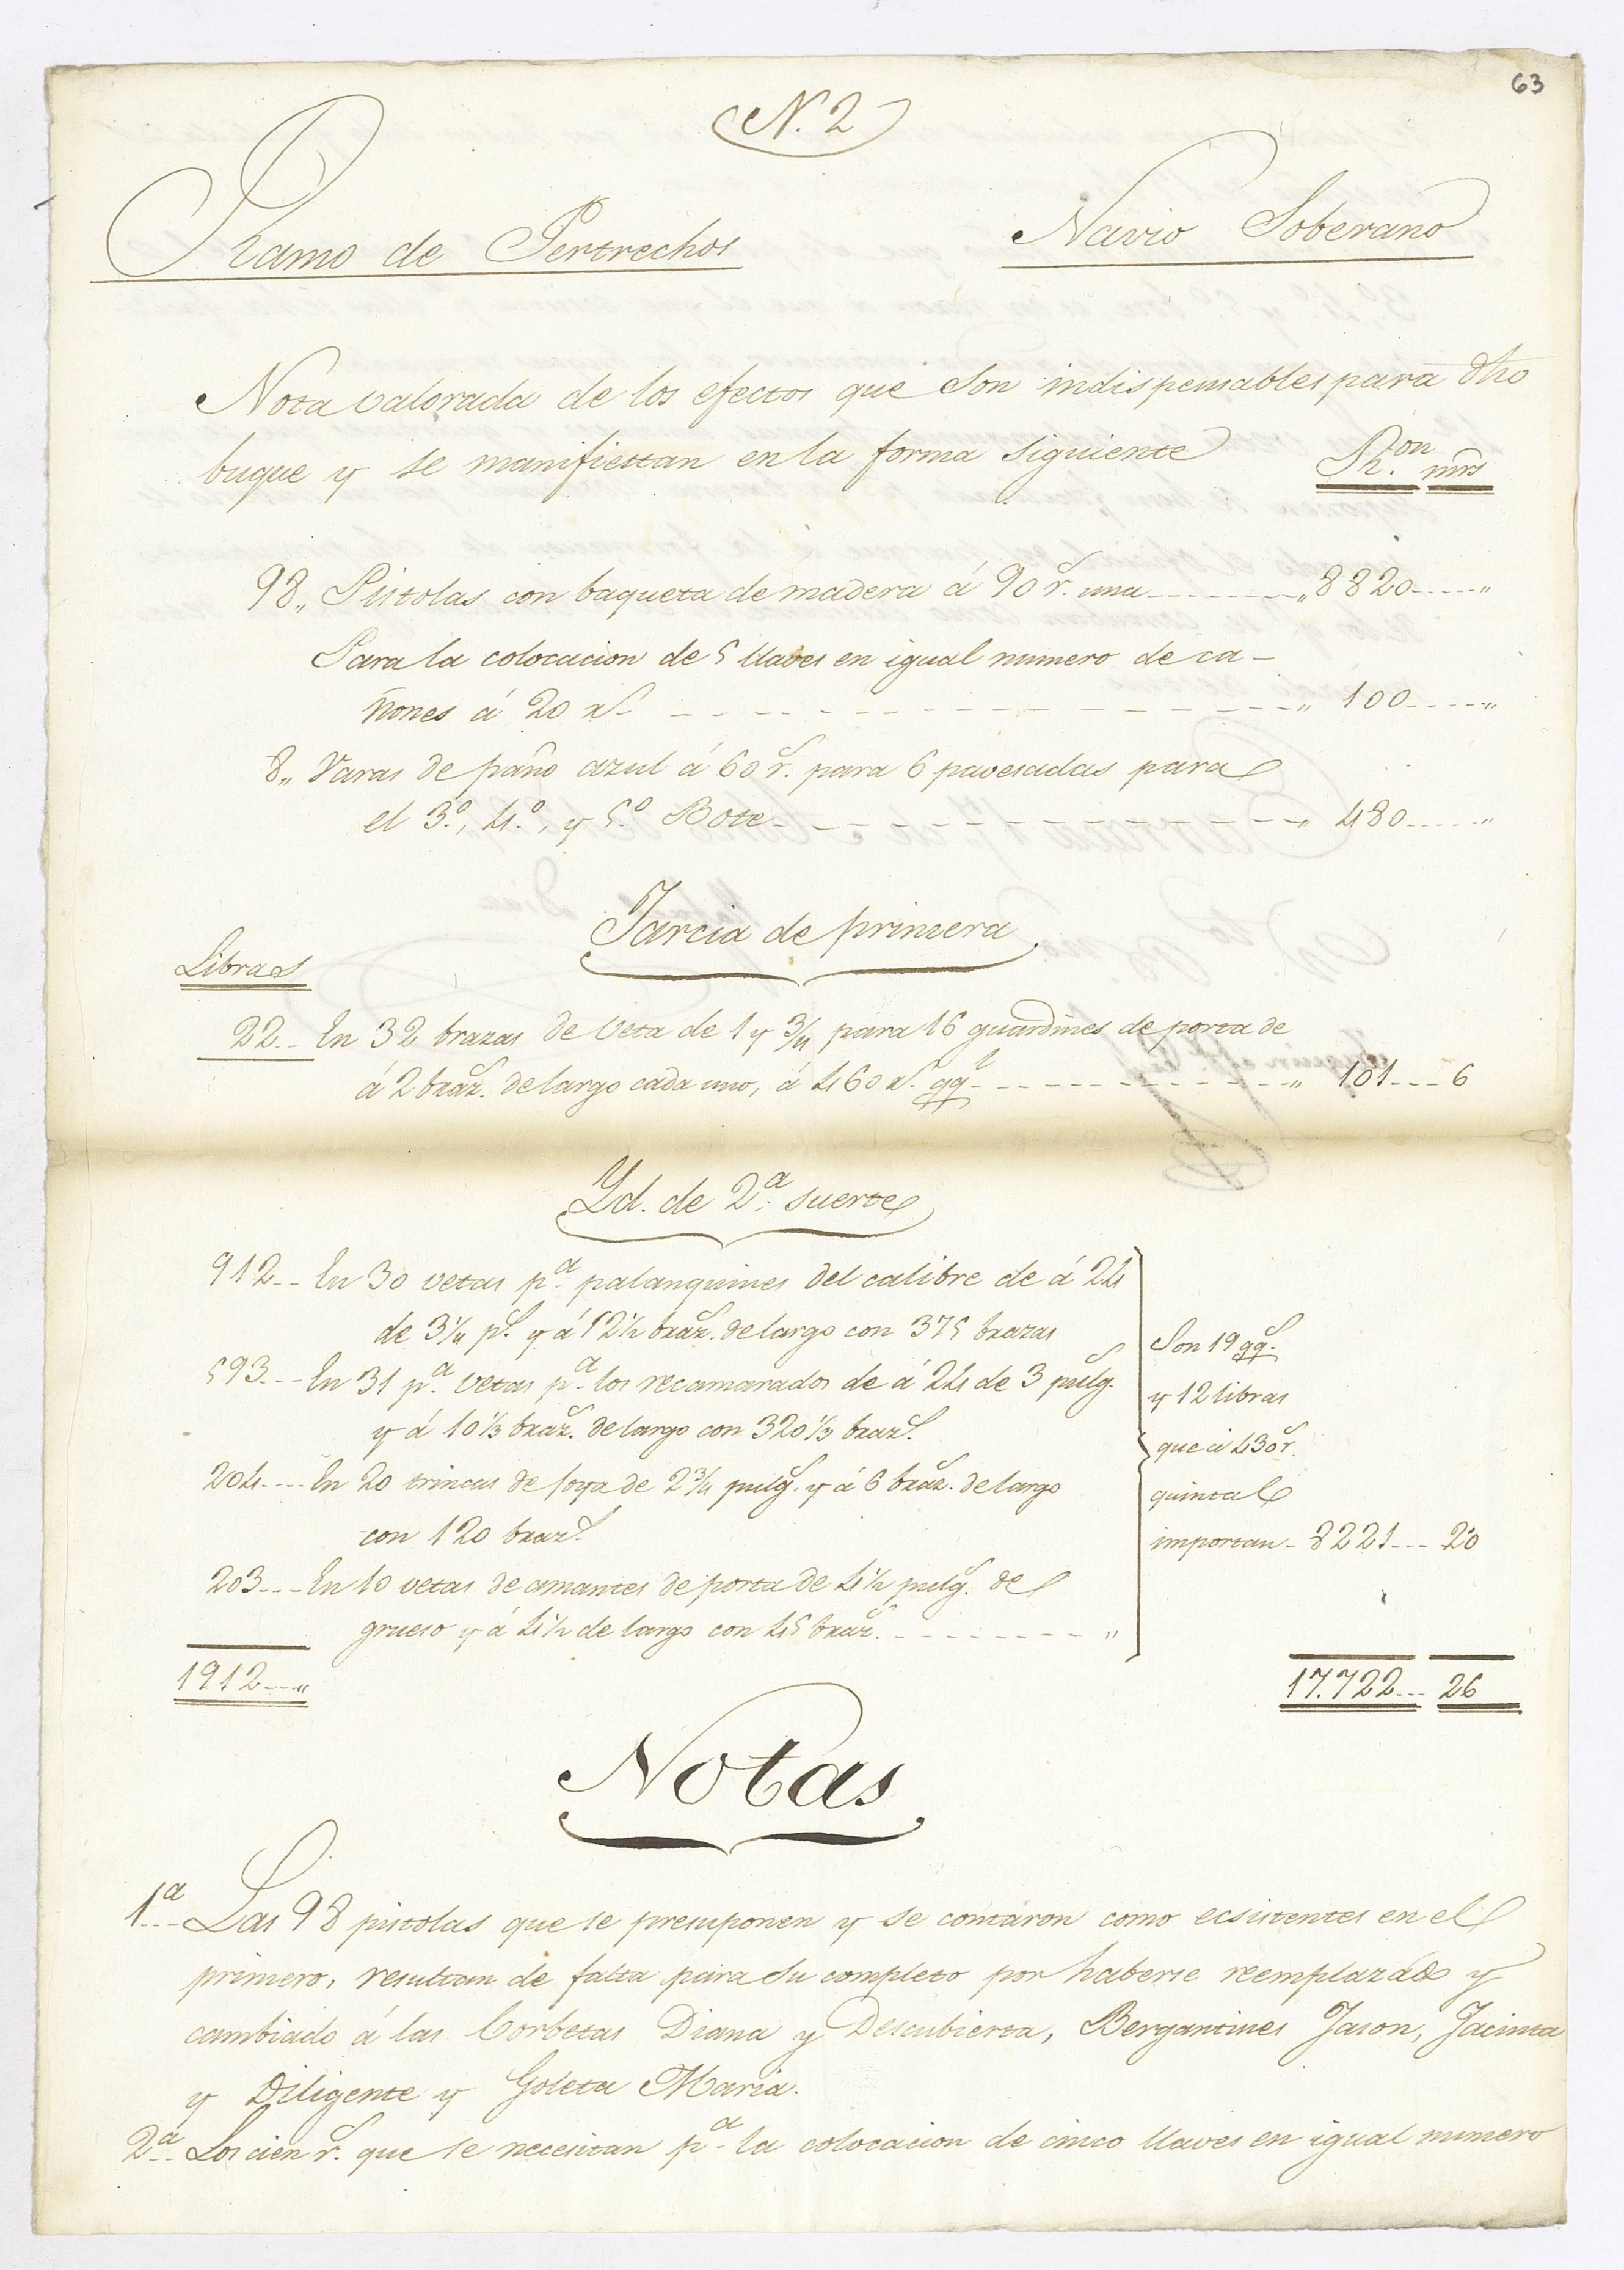 63
N. 2
Ramo de Pertrechos
Navio Soberano
Nota valorada de los efectos que son indispensables para dho
buque y se manifiestan en la forma siguiente
R.on mrs
98,, Pistolas con baqueta de madera á 90 rs. una --- ,, 8820 --- ,,
Para la colocacion de 5 llaves en igual numero de ca-
ñones á 20 rs. --- ,, 100 --- ,,
8,, Varas de paño azul á 60 rs. para 6 pavesadas para
el 3.º, 4.º, y 5.º Bote --- ,, 480 --- ,,
Jarcia de primera
Libras
22 -- En 32 brazas de veta de 1 y 3/4 para 16 guardines de porta de
á 2 braz.s de largo cada uno, á 460 rs. qql --- ,, 101 --- 6
Yd. de 2.a suerte
912 -- En 30 vetas p.a palanquines del calibre de á 24
de 3 1/4 p.s y á 12 1/2 braz.s de largo con 375 brazas
593 --- En 31 p.a vetas p.a los recamarados de á 24 de 3 pulg.s
y á 10 1/3 braz.s de largo con 320 1/3 braz.s
204 ---- En 20 trincas de joya de 2 3/4 pulg.s y á 6 braz.s de largo
con 120 braz.s
203 --- En 10 vetas de amantes de porta de 4 1/2 pulg.s de
grueso y á 4 1/2 de largo con 45 braz.s --- ,,
Son 19 qq.s
y 12 libras
que á 430 rs.
quintal
importan - 8221 --- 20
1912 --- ,,
17.722 --- 26
Notas
1.a -- Las 98 pistolas que se presuponen y se contaron como ecsistentes en el
primero, resultan de falta para su completo por haberse reemplazado y
cambiado á las Corbetas Diana y Descubierta, Bergantines Jason, Jacinta
y Diligente y Goleta Maria.
2.a -- Los cien rs. que se necesitan p.a la colocacion de cinco llaves en igual numero